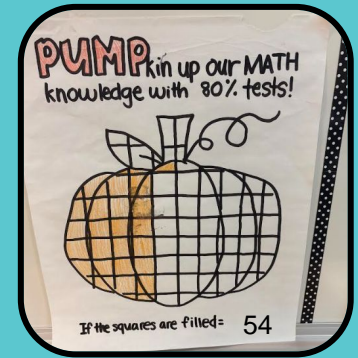 PUMPkin up our MATH
knowledge with 80% tests!
If the squares are filled= 54